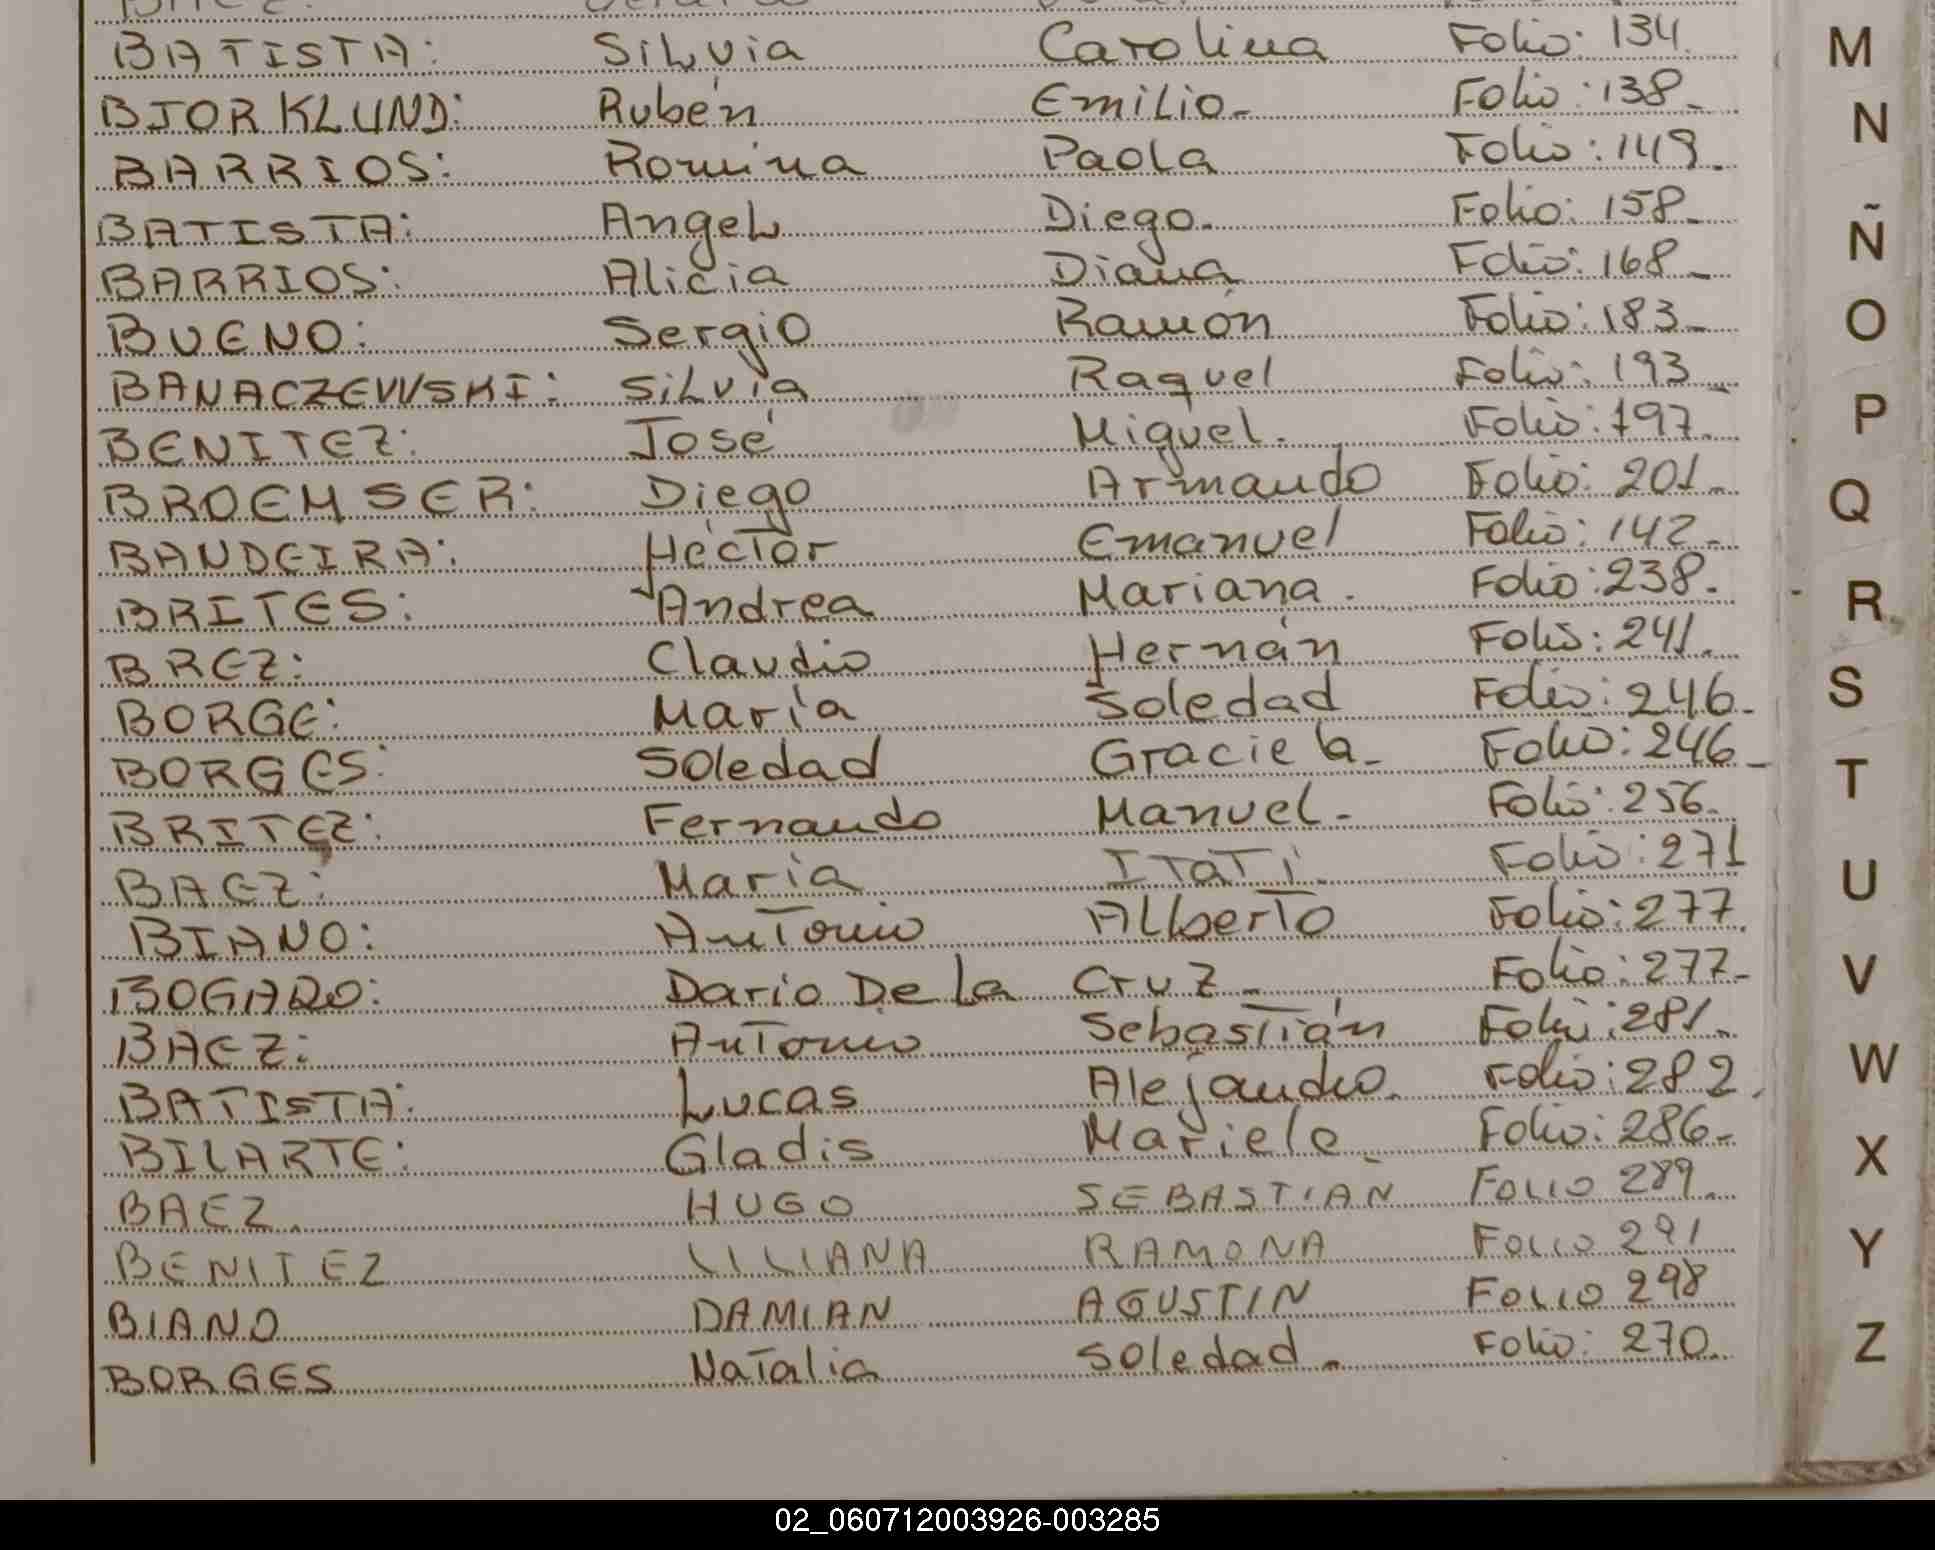 BATISTA: Silvia Carolina Folio: 134.
BJORKLUND: Rubén Emilio- Folio: 138-
BARRIOS: Romina Paola Folio: 149.
BATISTA: Angel Diego. Folio: 158-
BARRIOS: Alicia Diana Folio: 168-
BUENO: Sergio Ramón Folio: 183-
BANACZEWSKI: Silvia Raquel Folio: 193-
BENITEZ: José Miguel. Folio: 197.
BROEMSER: Diego Armando Folio: 201-
BANDEIRA: Héctor Emanuel Folio: 142-
BRITES: Andrea Mariana. Folio: 238.
BREZ: Claudio Hernán Folio: 241.
BORGE: María Soledad Folio: 246-
BORGES: Soledad Graciela- Folio: 246-
BRITEZ: Fernando Manuel- Folio: 256.
BAEZ: María ITATÍ. Folio: 271
BIANO: Antonio Alberto Folio: 277.
BOGADO: Dario De La Cruz- Folio: 277-
BAEZ: Antonio Sebastián Folio: 281-
BATISTA: Lucas Alejandro. Folio: 282.
BILARTE: Gladis Mariele- Folio: 286-
BAEZ. HUGO SEBASTIAN FOLIO 289.
BENITEZ LILIANA RAMONA FOLIO 291
BIANO DAMIAN AGUSTIN FOLIO 298
BORGES Natalia Soledad- Folio: 270.
M
N
Ñ
O
P
Q
R
S
T
U
V
W
X
Y
Z
02_060712003926-003285